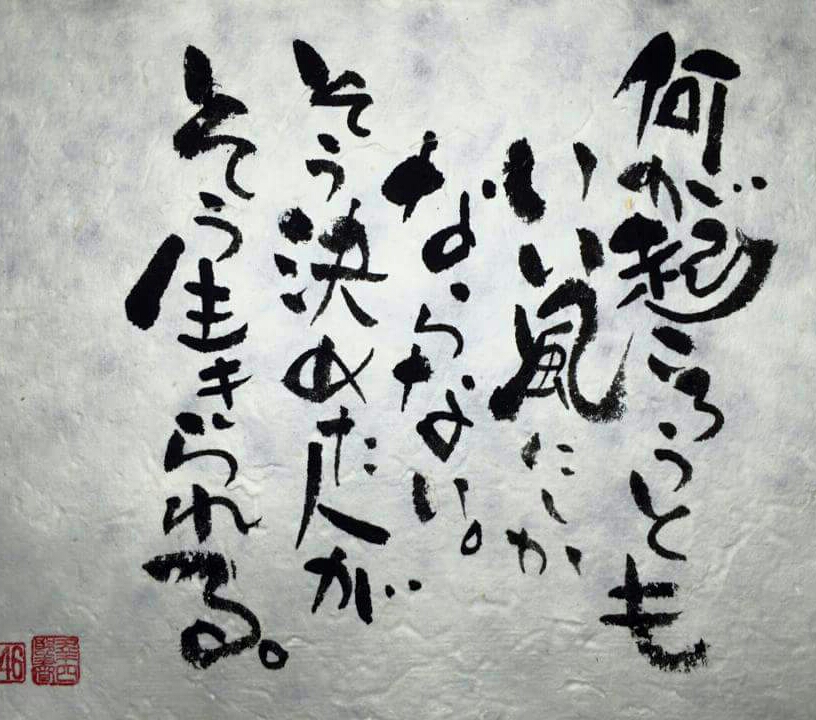 何が起ころうとも
いい風にしか
ならない。
そう決めた人が
そう生きられる。
46